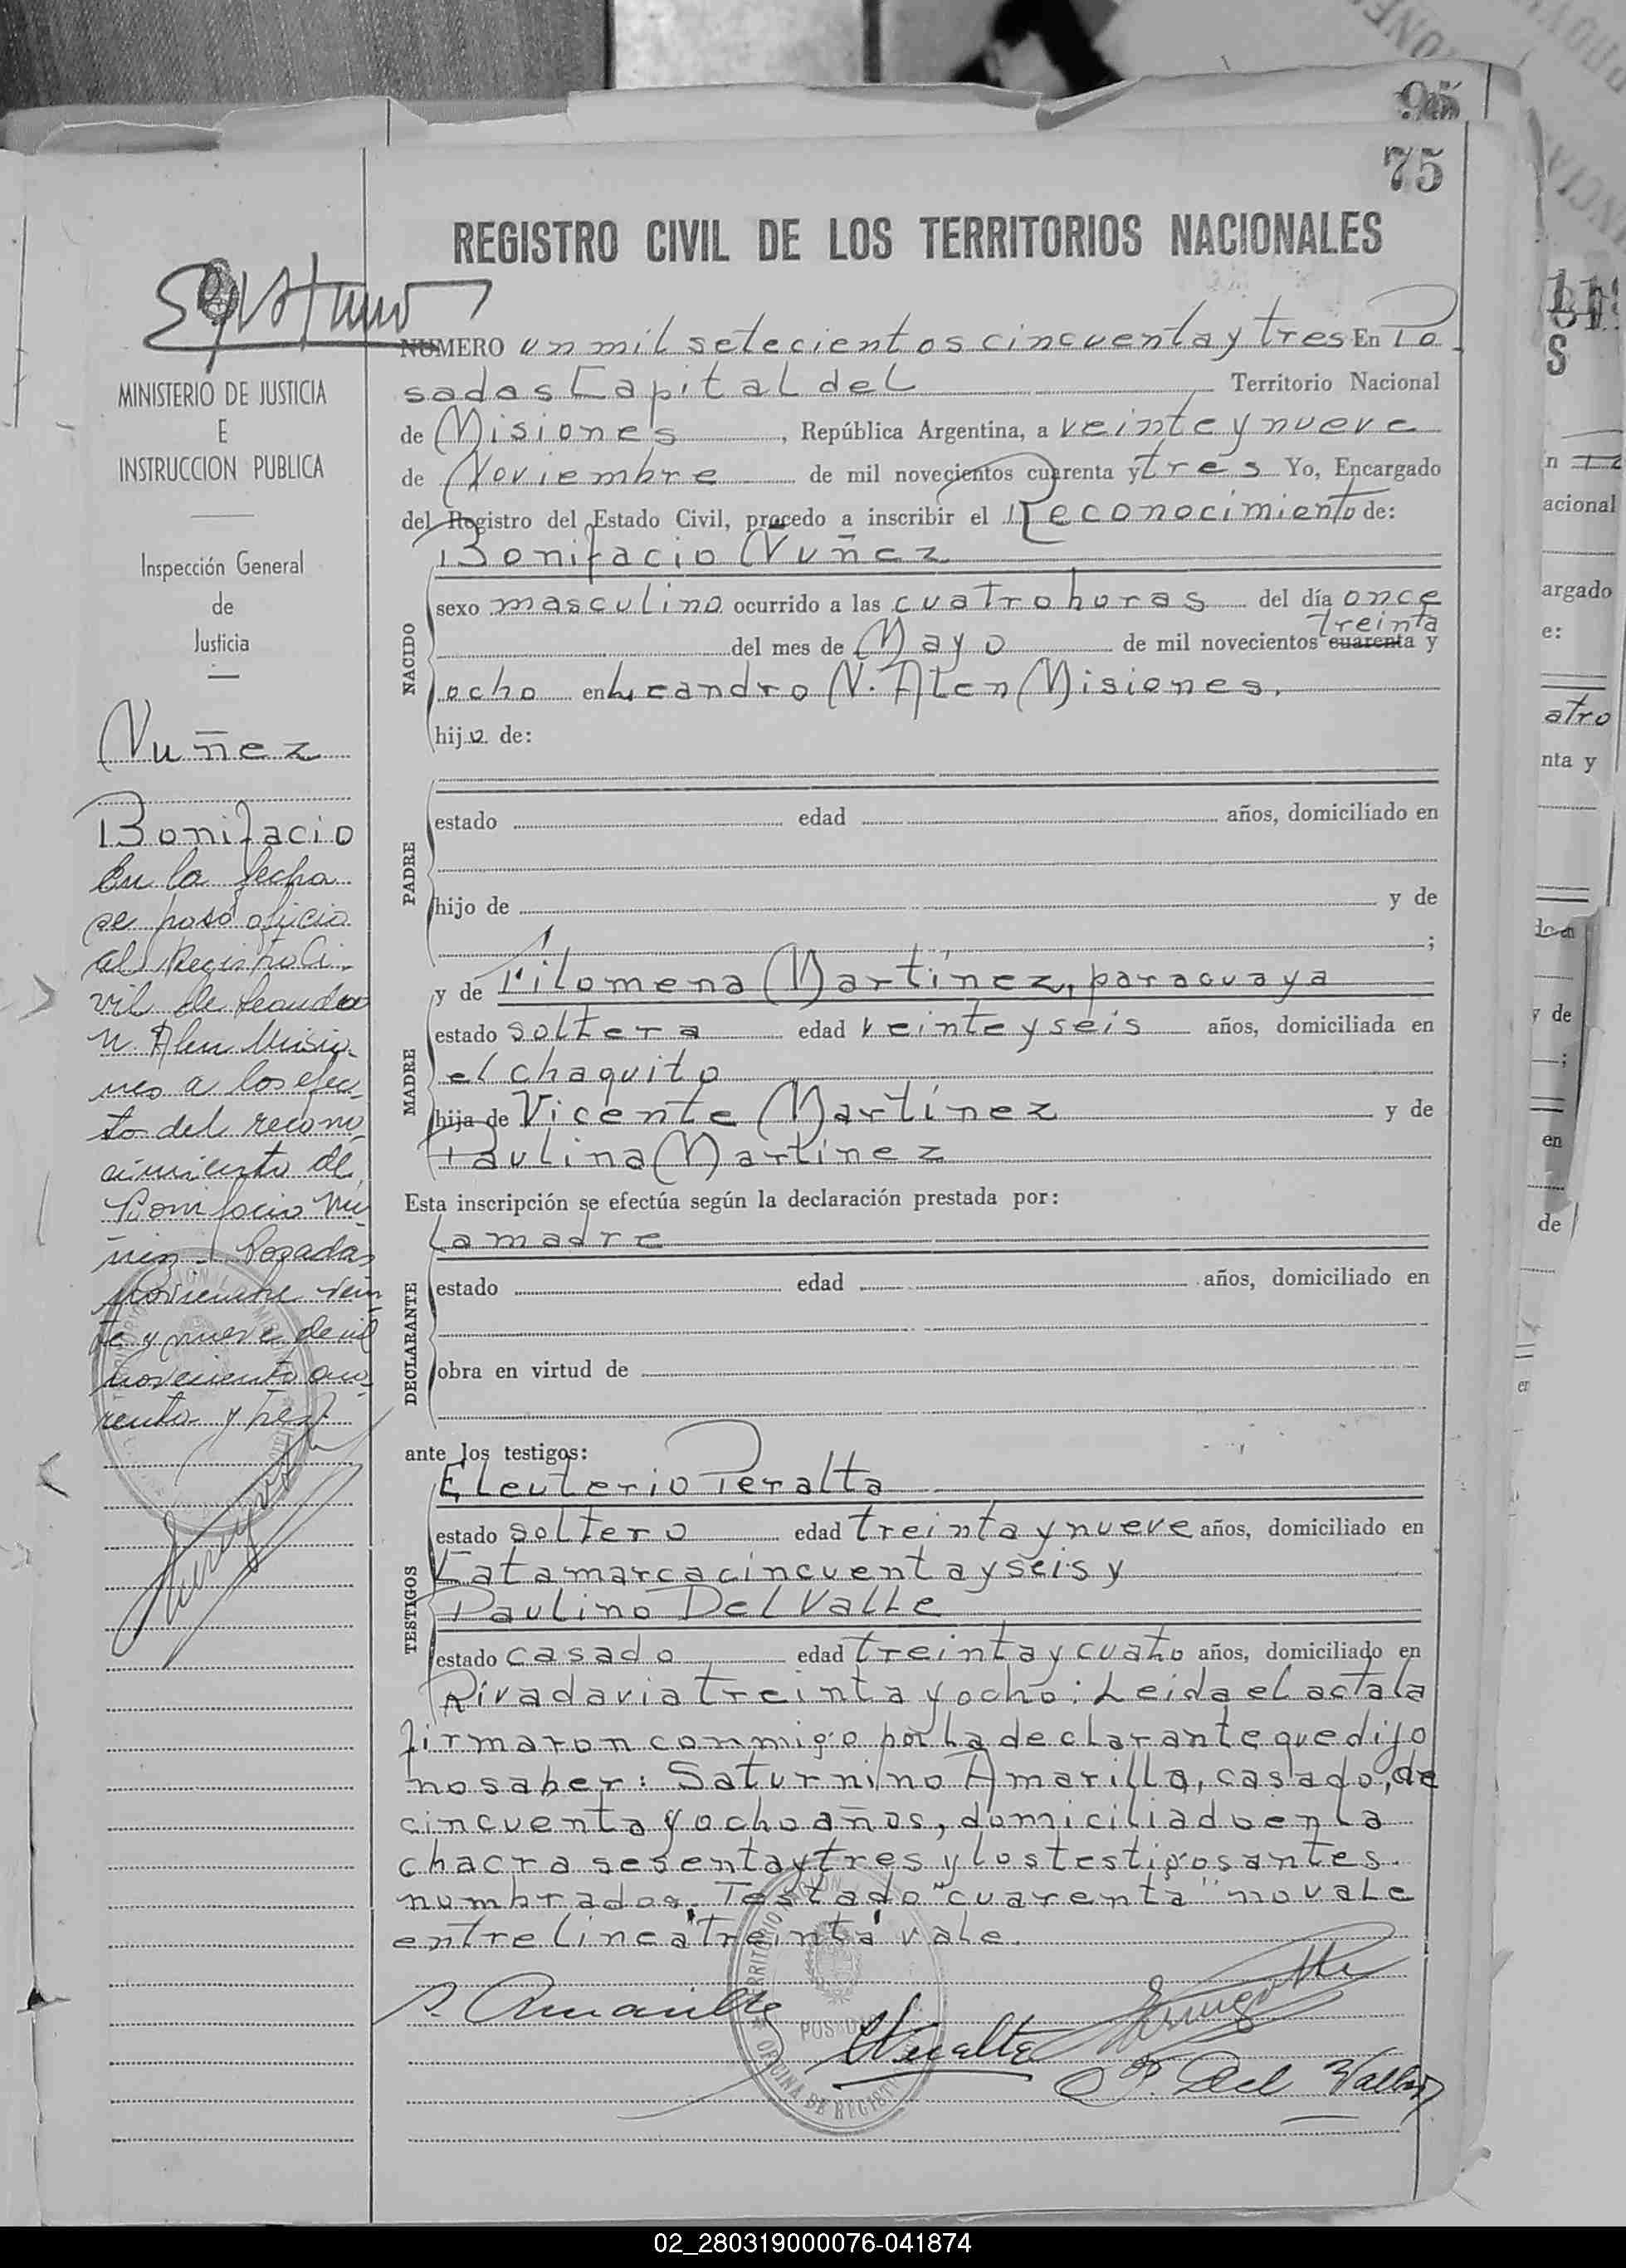 95
75
REGISTRO CIVIL DE LOS TERRITORIOS NACIONALES
MINISTERIO DE JUSTICIA
E
INSTRUCCION PUBLICA
Inspección General
de
Justicia
Nuñez
Bonifacio
En la fecha
se pasó oficio
al Registro Ci-
vil de Leandro
N. Alen Misio-
nes a los efec-
to del recono-
cimiento de
Bonifacio Nu-
ñez. Posadas
Noviembre vein-
te y nueve de mil
novecientos cua-
renta y tres.
NUMERO un mil setecientos cincuenta y tres En Po-
sadas Capital del Territorio Nacional
de Misiones, República Argentina, a veinte y nueve
de Noviembre de mil novecientos cuarenta y tres Yo, Encargado
del Registro del Estado Civil, procedo a inscribir el Reconocimiento de:
Bonifacio Nuñez
NACIDO
sexo masculino ocurrido a las cuatro horas del día once
treinta
del mes de Mayo de mil novecientos cuarenta y
ocho en Leandro N. Alen Misiones.
hijo de:
PADRE
estado edad años, domiciliado en
hijo de y de
;
MADRE
y de Filomena Martínez, paraguaya
estado soltera edad veinte y seis años, domiciliada en
el chaquito
hija de Vicente Martínez y de
Paulina Martinez
Esta inscripción se efectúa según la declaración prestada por:
La madre
DECLARANTE
estado edad años, domiciliado en
obra en virtud de
ante los testigos:
TESTIGOS
Eleuterio Peralta
estado soltero edad treinta y nueve años, domiciliado en
Catamarca cincuenta y seis y
Paulino Del Valle
estado casado edad treinta y cuatro años, domiciliado en
Rivadavia treinta y ocho: Leida el acta la
firmaron conmigo por la declarante que dijo
no saber: Saturnino Amarilla, casado, de
cincuenta y ocho años, domiciliado en la
chacra sesenta y tres y los testigos antes
nombrados. Testado "cuarenta" no vale
entre linea "treinta" vale.
S. Amarilla
P. Del Valle
OFICINA DE REGISTRO
02_280319000076-041874